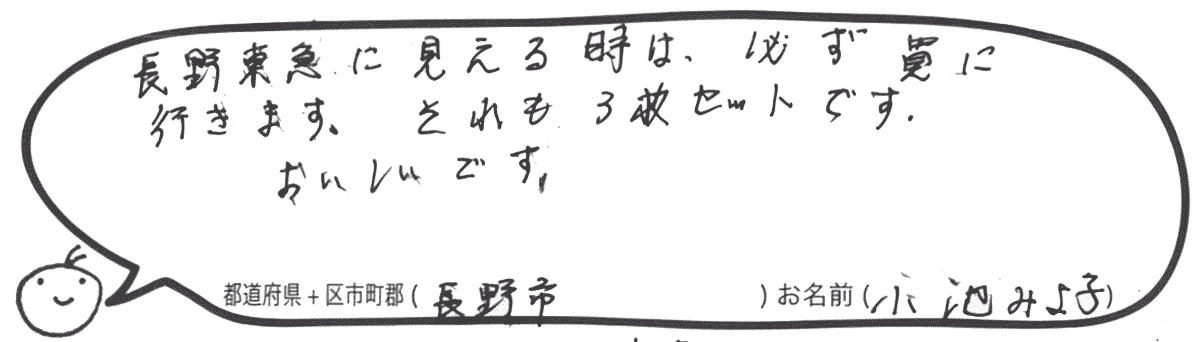 長野東急に見える時は、必ず買に
行きます。それも3枚セットです。
おいしいです。
都道府県+区市町郡(長野市)お名前(小池みよ子)